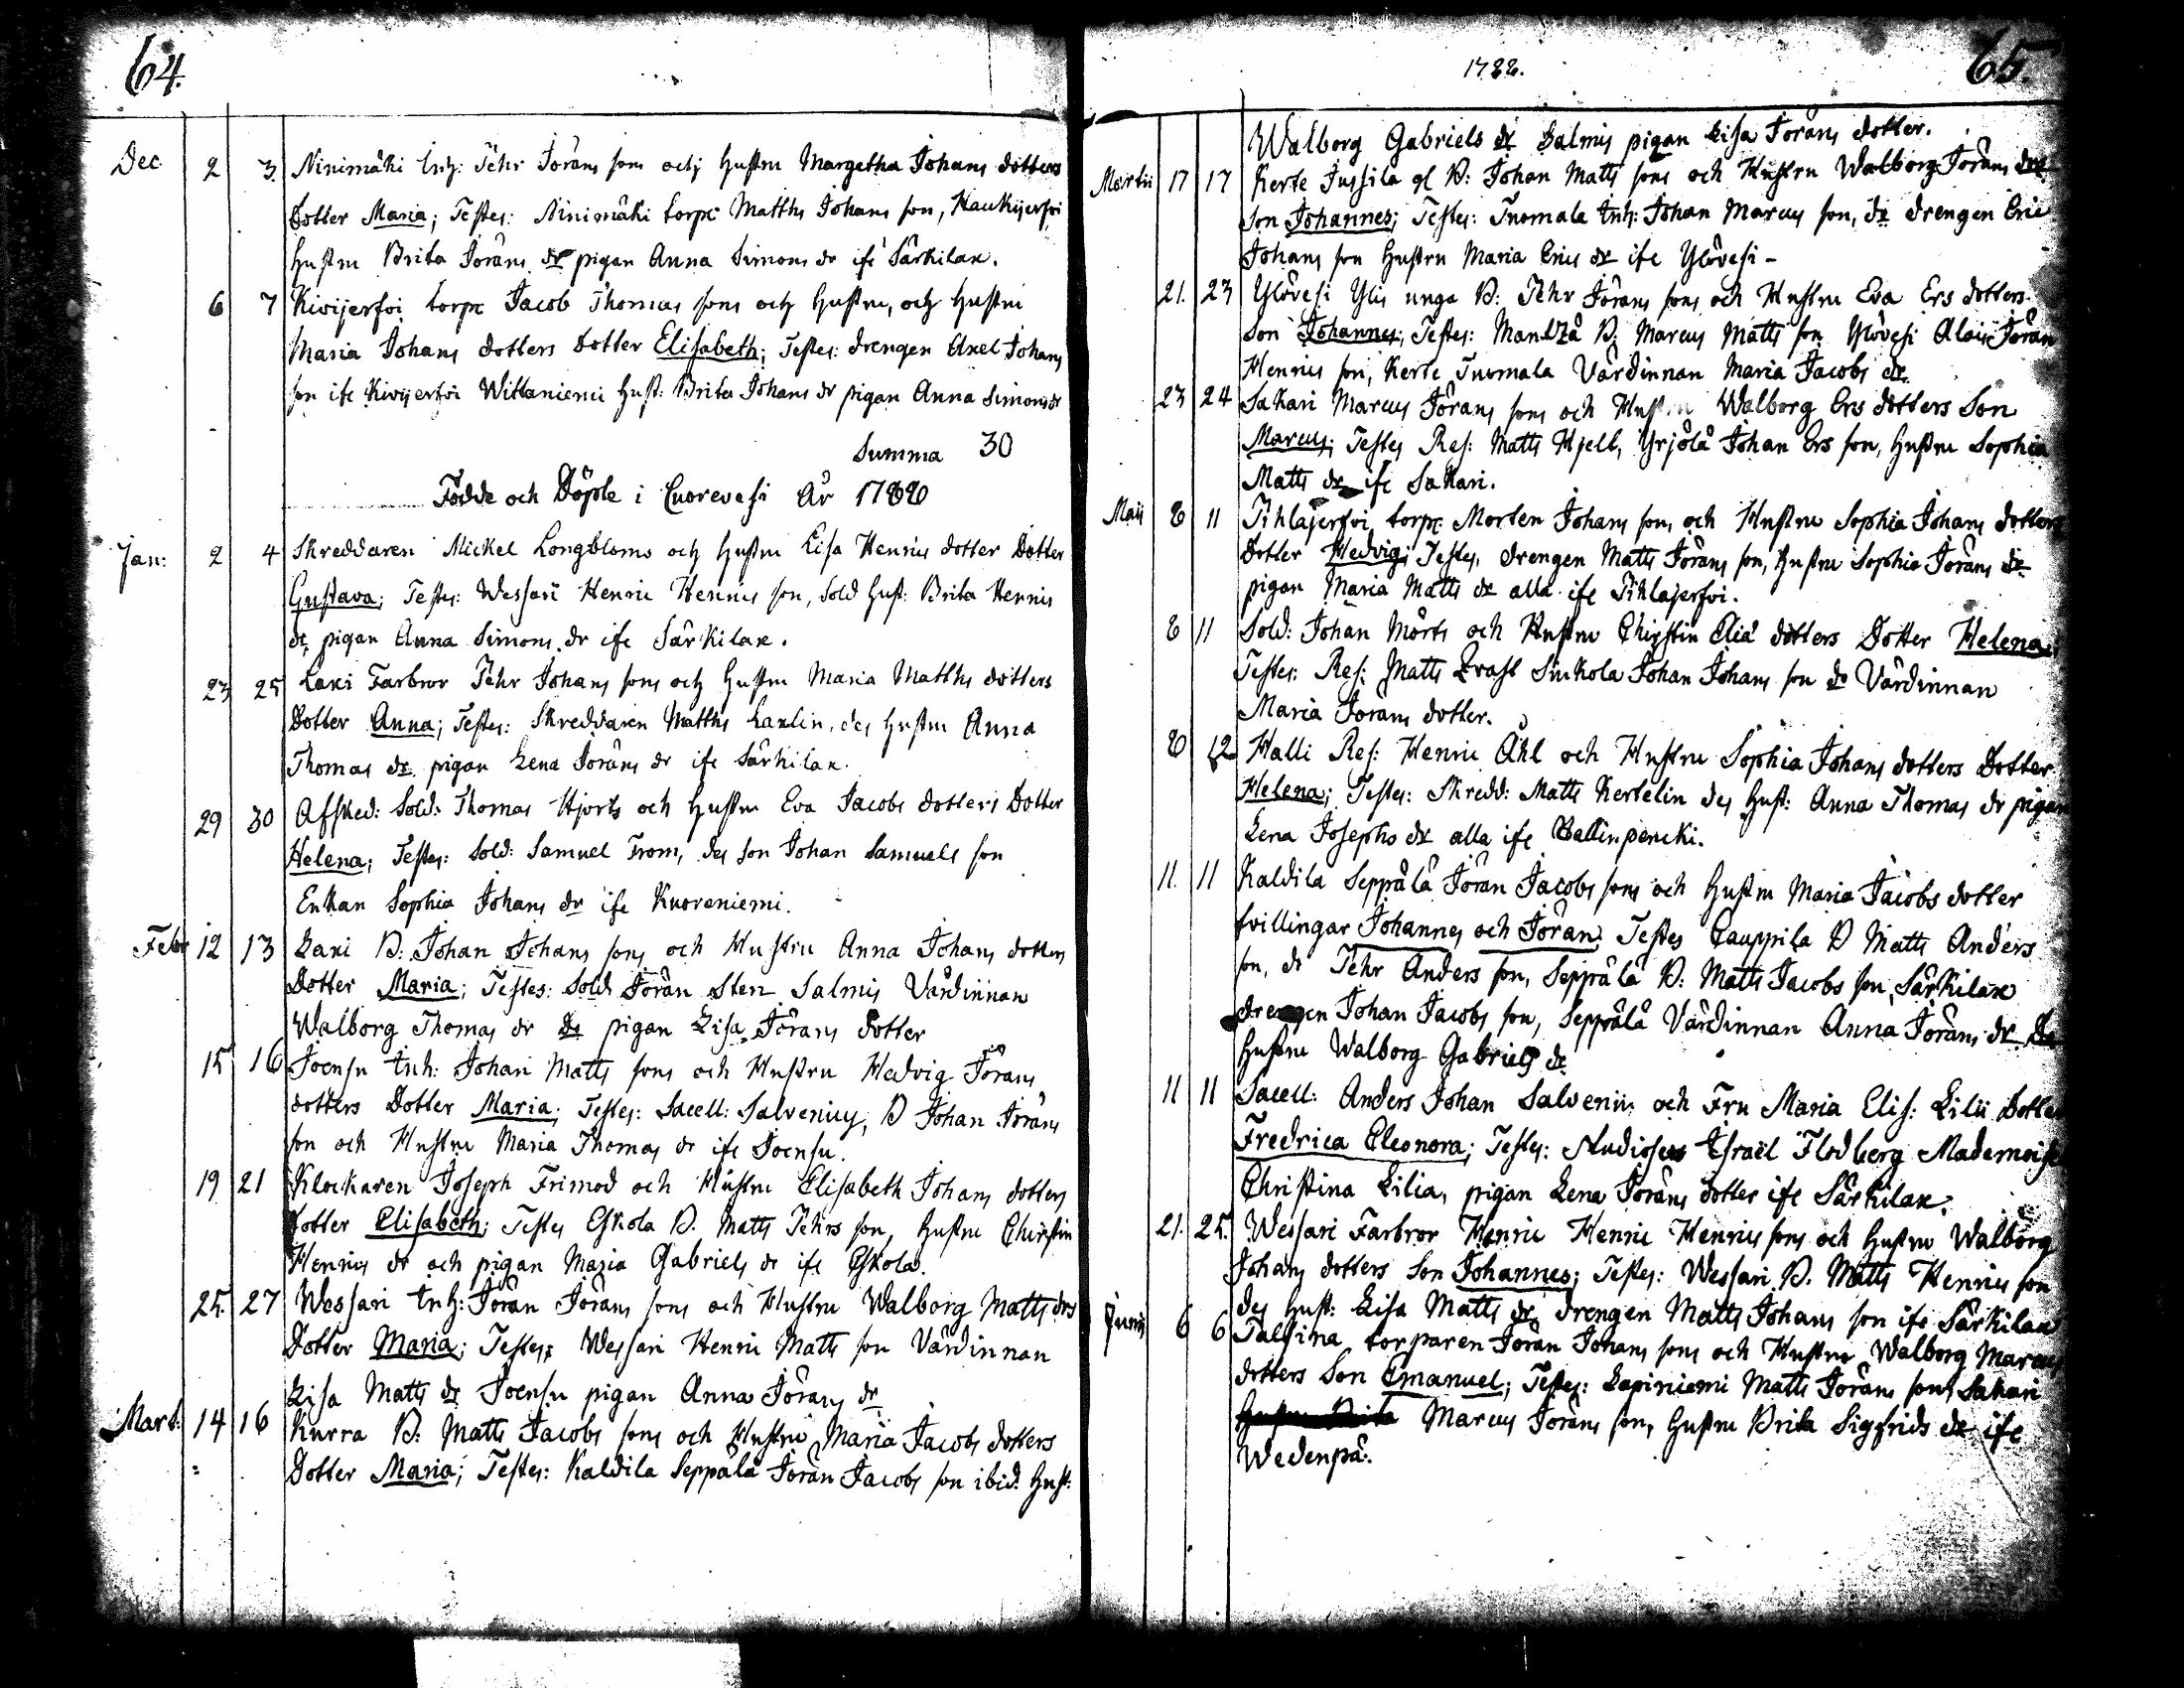 64.
Dec 2 3. Ninimäki Inh: Jehr Jörans son och Hustru Margetha Johans dotters
Dotter Maria; Testes: Ninimäki torpr Matths Johans son, Haukijerfvi
Hustru Brita Jörans dr pigan Anna Simons dr ifr Särkilax.
6 7 Kivijerfvi torpr Jacob Thomas sons och Hustru, och Hustru
Maria Johans dotters Dotter Elisabeth; Testes: drengen Axel Johans
son ifr Kivijerfvi Wittaniemi Hust: Brita Johans dr pigan Anna Simons dr
Summa 30
Födde och Döpte i Cuorevesi År 1788
Jan: 2 4 Skreddaren Mickel Longbloms och Hustru Lisa Henrics dotter Dotter
Gustava; Testes: Wessari Henric Henrics son, Sold Hust: Brita Henrics
dr, pigan Anna Simons dr ifr Särkilax.
23 25 Laxi Farbror Jehr Johans sons och Hustru Maria Matths dotters
Dotter Anna; Testes: Skreddaren Matths Laxlin, des Hustru Anna
Thomas dr pigan Lena Jörans dr ifr Särkilax.
29 30 Afsked: Sold: Thomas Hjorts och Hustru Eva Jacobs dotters Dotter
Helena; Testes: Sold: Samuel From, des son Johan Samuels son
Enkan Sophia Johans dr ifr Kuoreniemi.
Febr 12 13 Laxi B: Johan Johans sons och Hustru Anna Johans dotters
Dotter Maria; Testes: Sold Jöran Sten Salmis Värdinnan
Walborg Thomas dr Do pigan Lisa Jörans Dotter
15 16 Joensu Inh: Johan Matts sons och Hustru Hedvig Jörans
dotters Dotter Maria; Testes: Sacell: Salvenius, B Johan Jörans
son och Hustru Maria Thomas dr ifr Joensu.
19 21 Klockaren Joseph Frimod och Hustru Elisabeth Johans dotters
Dotter Elisabeth; Testes Eskola B. Matts Jehrs son, Hustru Christin
Henrics dr och pigan Maria Gabriels dr ifr Eskola.
25. 27 Wessari Inh: Jöran Jörans sons och Hustru Walborg Matts drs
Dotter Maria; Testes: Wessari Henric Matts son Värdinnan
Lisa Matts dr Joensu pigan Anna Jörans dr
Mart: 14 16 Kurra B: Matts Jacobs sons och Hustru Maria Jacobs dotters
Dotter Maria; Testes: Kaldila Seppälä Jöran Jacobs son ibid. Hust:
1788. 65.
Walborg Gabriels dr Salmis pigan Lisa Jörans dotter.
Martii 17 17 Kerte Jussila gl B: Johan Matts sons och Hustru Walborg Jörans drs
son Johannes; Testes: Tuomala Inh: Johan Marcus son, do drengen Eric
Johans son Hustru Maria Erics dr ifr Ylövesi -
21. 23 Ylövesi Ylis unga B: Jehr Jörans sons och Hustru Eva Ers dotters
Son Johannes; Testes: B: Marcus Matts son Ylövesi Alais Jöran
Henrics son, Kerte Tuomala Värdinnan Maria Jacobs dr.
23 24 Sakari Marcus Jörans sons och Hustru Walborg Ers dotters Son
Marcus; Testes Res: Matts Hjelt, Yrjölä Johan Ers son, Hustru Sophia
Matts dr ifr Sakari.
Maii 8 11 Pihlajerfvi torpr Morten Johans sons och Hustru Sophia Johans dotters
Dotter Hedvig; Testes, drengen Matts Jörans son, Hustru Sophia Jörans dr
pigan Maria Matts dr alla ifr Pihlajerfvi.
8 11 Sold: Johan Mörts och Hustru Christin Eliä dotters Dotter Helena;
Testes: Res: Matts Qvast Sinkola Johan Johans son do Värdinnan
Maria Jörans dotter.
8 12 Halli Res: Henric Åhl och Hustru Sophia Johans dotters Dotter
Helena; Testes: Skredd: Matts Kertelin des Hust: Anna Thomas dr pigan
Lena Josephs dr alla ifr Battinpencki.
11. 11 Kaldila Seppälä Jöran Jacobs sons och Hustru Maria Jacobs dotter
tvillingar Johannes och Jöran. Testes Cauppila B Matts Anders
son, do Jehr Anders son, Seppälä B: Matts Jacobs son, Särkilax
drengen Johan Jacobs son, Seppälä Värdinnan Anna Jörans dr Do
Hustru Walborg Gabriels dr
11 11 Sacell: Anders Johan Salvenii och Fru Maria Elis: Lilii Dotter
Fredrica Eleonora; Testes: Studiosus Israël Flodberg Mademoise
Christina Lilia, pigan Lena Jörans dotter ifr Särkilax.
21. 25. Wessari Farbror Henric Henric Henrics sons och Hustru Walborg
Johans dotters Son Johannes; Testes: Wessari B. Matts Henrics son
des Hust: Lisa Matts dr drengen Matts Johans son ifr Särkilax
Junii 6 6 Talsina torparen Jöran Johans sons och Hustru Walborg Marcus
dotters Son Emanuel; Testes: Lapiniemi Matts Jörans son, Sakari
Hustru Brita Marcus Jörans son, Hustru Brita Sigfrids dr ifr
Wedenpä.